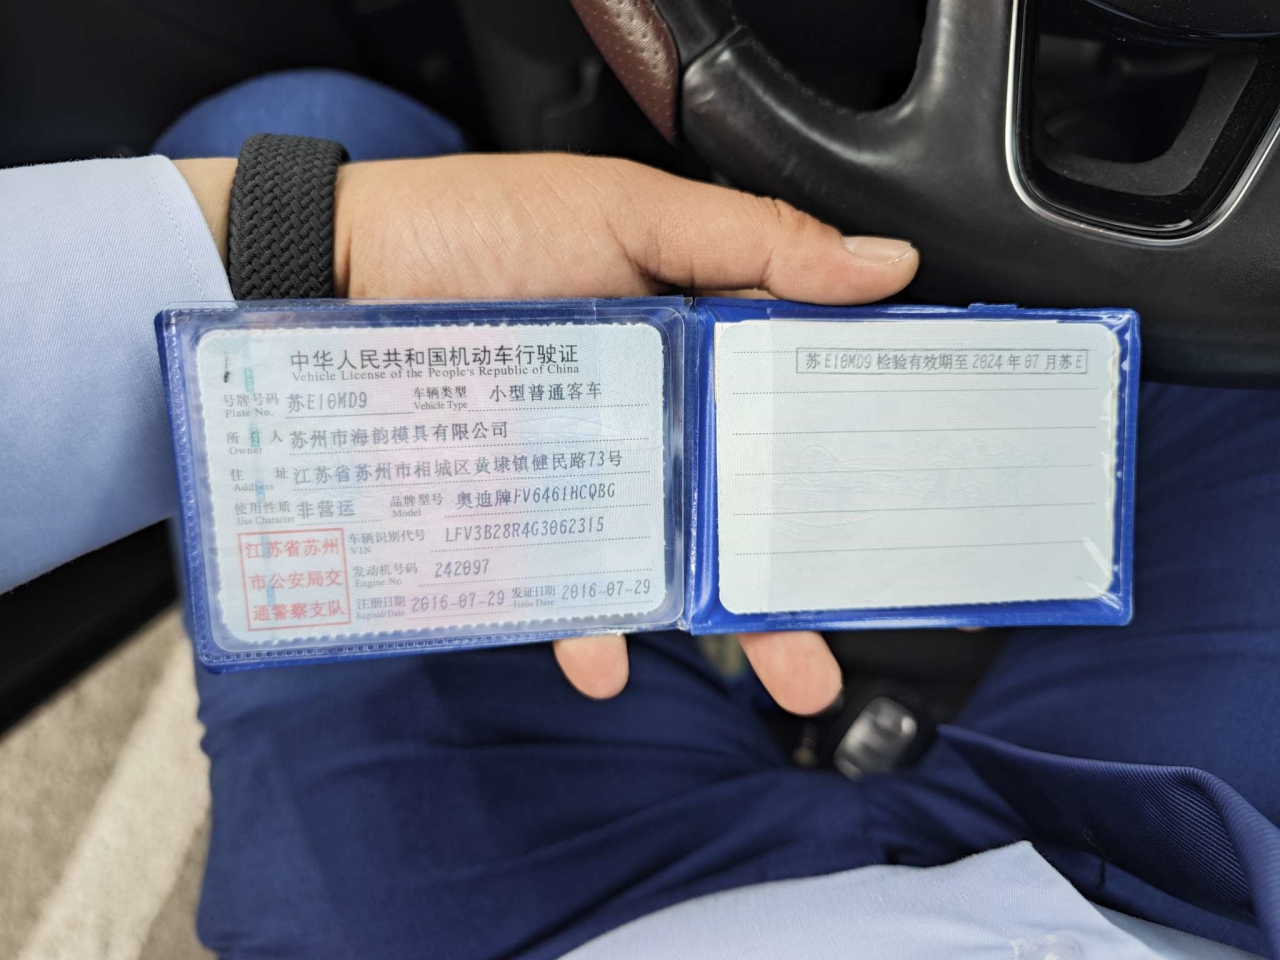 中华人民共和国机动车行驶证
Vehicle License of the People's Republic of China
号牌号码 苏E10MD9 车辆类型 小型普通客车
Plate No. Vehicle Type
所有人 苏州市海韵模具有限公司
Owner
住址 江苏省苏州市相城区黄埭镇健民路73号
Address
使用性质 非营运 品牌型号 奥迪牌FV6461HCQBG
Use Character Model
车辆识别代号 LFV3B28R4G3062315
VIN
发动机号码 242097
Engine No.
注册日期 2016-07-29 发证日期 2016-07-29
Register Date Issue Date
江苏省苏州
市公安局交
通警察支队
苏E10MD9 检验有效期至 2024 年 07 月苏 E